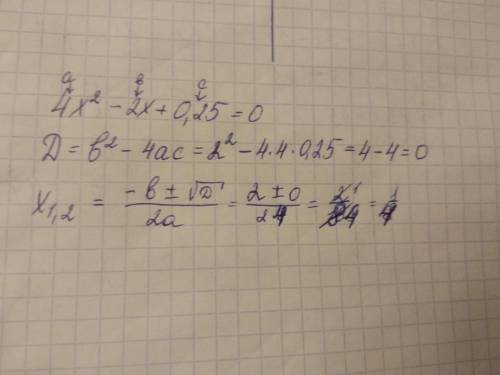 a в c
4x² - 2x + 0,25 = 0
D = в² - 4ac = 2² - 4·4·0,25 = 4 - 4 = 0
x₁,₂ = (-в ± √D)/(2a) = (2 ± 0)/(2·4) = 2/8 = 1/4